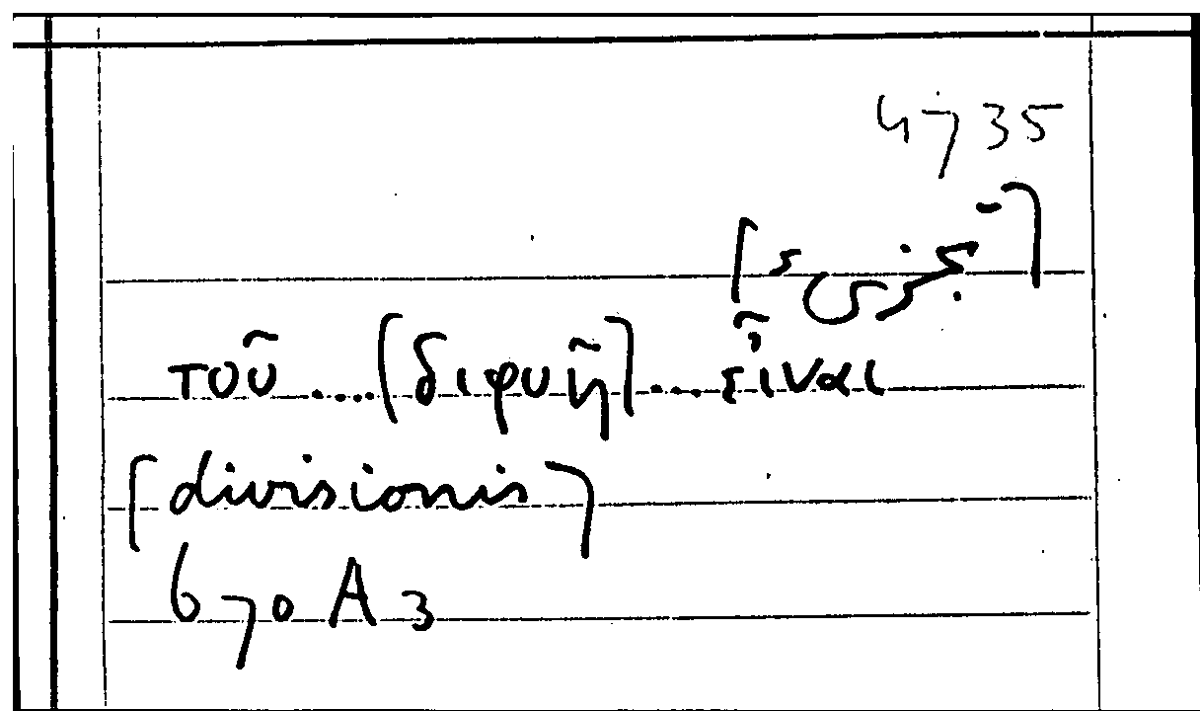 4735
τοῦ....[διφυῆ]....εἶναι
[divisionis]
670 A 3